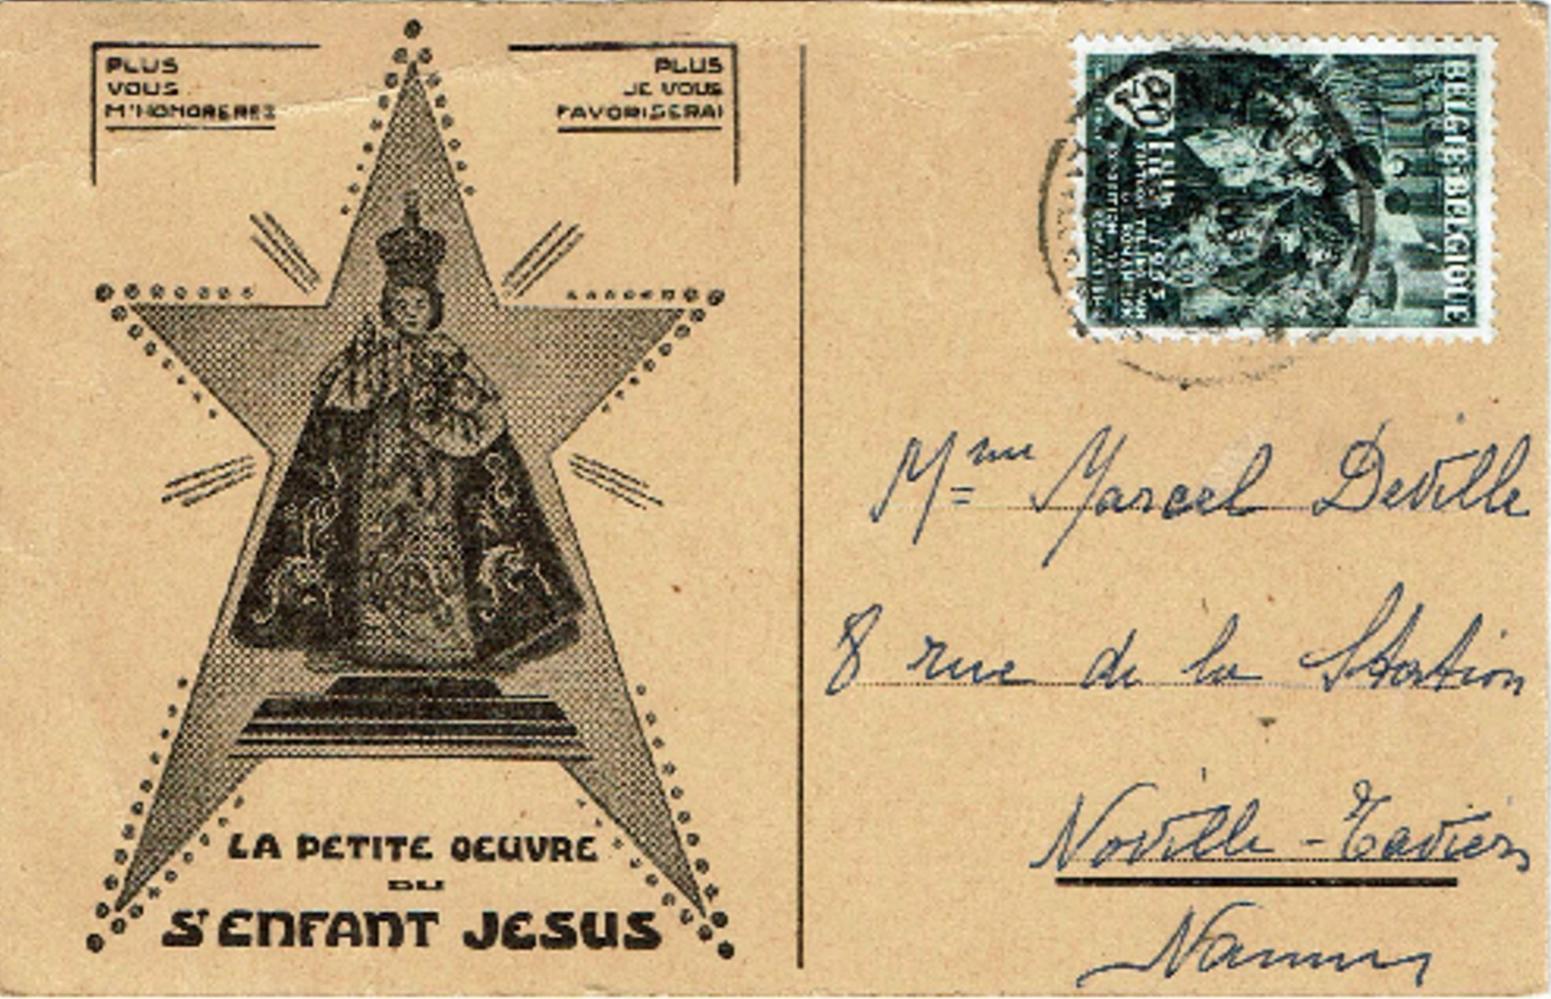 PLUS
VOUS
M'HONOREREZ
PLUS
JE VOUS
FAVORISERAI
BELGIE-BELGIQUE
LA PETITE OEUVRE
DU
ST ENFANT JESUS
Mme Marcel Deville
8 rue de la Station
Noville-Taviers
Namur